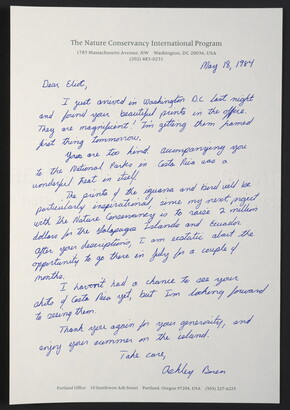 The Nature Conservancy International Program
1785 Massachusetts Avenue, NW Washington, DC 20036, USA
(202) 483-0231
May 18, 1984
Dear Eliot,
I just arrived in Washington D.C. last night
and found your beautiful prints in the office.
They are magnificent! I'm getting them framed
first thing tommorrow.
You are too kind. Accompanying you
to the National Parks in Costa Rica was a
wonderful treat in itself.
The prints of the iguana and bird will be
particularly inspirational, since my next project
with the Nature Conservancy is to raise 2 million
dollars for the Galapagos Islands and Ecuador.
After your descriptions, I am ecstatic about the
opportunity to go there in July for a couple of
months.
I haven't had a chance to see your
shots of Costa Rica yet, but I'm looking forward
to seeing them.
Thank you again for your generosity, and
enjoy your summer on the island.
Take care,
Ashley
Portland Office 14 Northwest Ash Street Portland, Oregon 97204, USA (503)